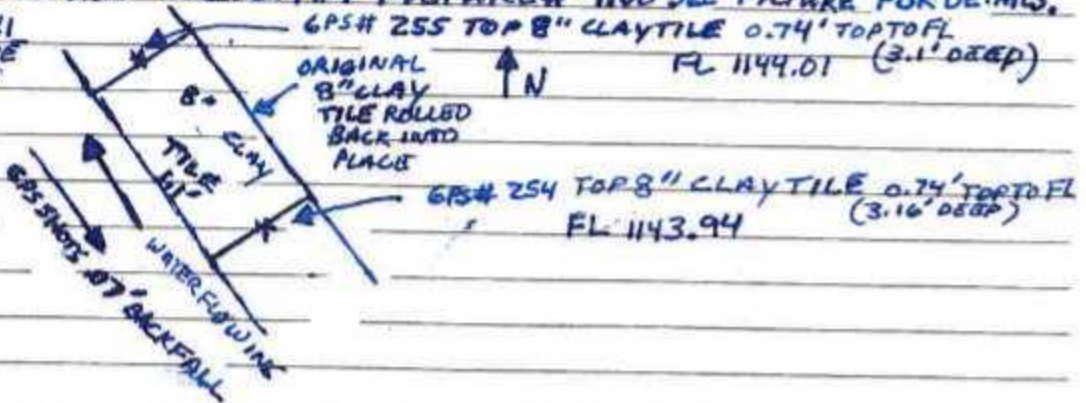 SEE PICTURE FOR DETAILS.
GPS# 255 TOP 8" CLAYTILE 0.74' TOP TO FL
FL 1144.01 (3.1' DEEP)
N
ORIGINAL
8" CLAY
TILE ROLLED
BACK INTO
PLACE
8" CLAY
TILE
GPS# 254 TOP 8" CLAY TILE 0.74' TOP TO FL
(3.16' DEEP)
FL 1143.94
WATER FLOWING
GPS SHOTS .07' BACKFALL